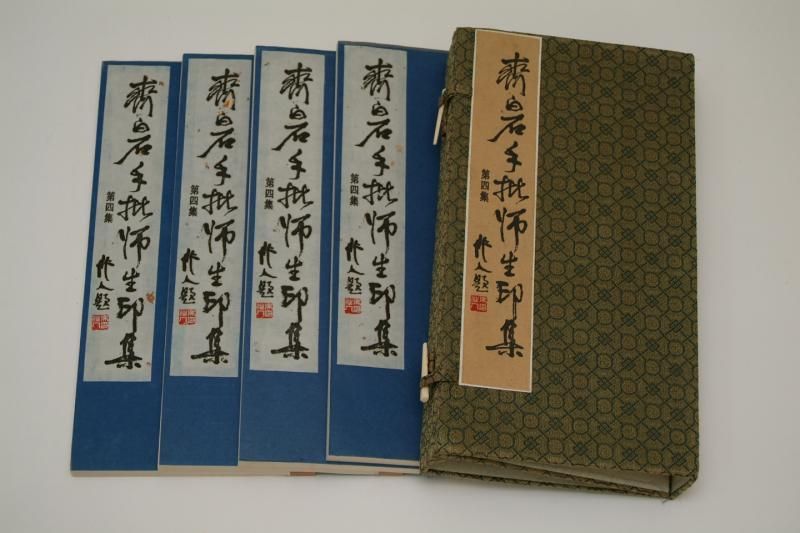 齊白石手批师生印集
第四集
作人題
齊白石手批师生印集
第四集
作人題
齊白石手批师生印集
第四集
作人題
齊白石手批师生印集
第四集
作人題
齊白石手批师生印集
第四集
作人題